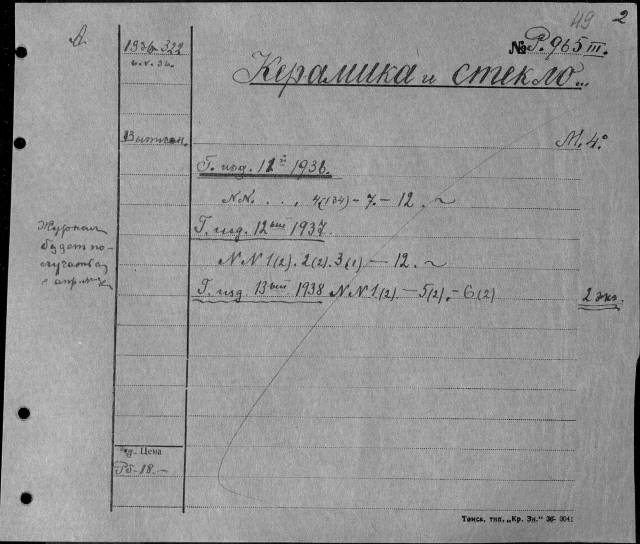 49 2
1936-322
№ Р. 965 III.
Керамика и стекло...
Выписан. М. 4°
Г. изд. 11й 1936.
NN. . . , 4(134) - 7. - 12. ~
Г. изд. 12ый 1937
NN 1(2). 2(2). 3(1) - 12. ~
Г. изд 13ый 1938 NN 1(2). - 5(2). - 6(2)
2 экз.
Журнал
будет по-
лучаться
с апреля
Цена
Рб-18.-
Томск. тип. „Кр. Зн." 36- 304: